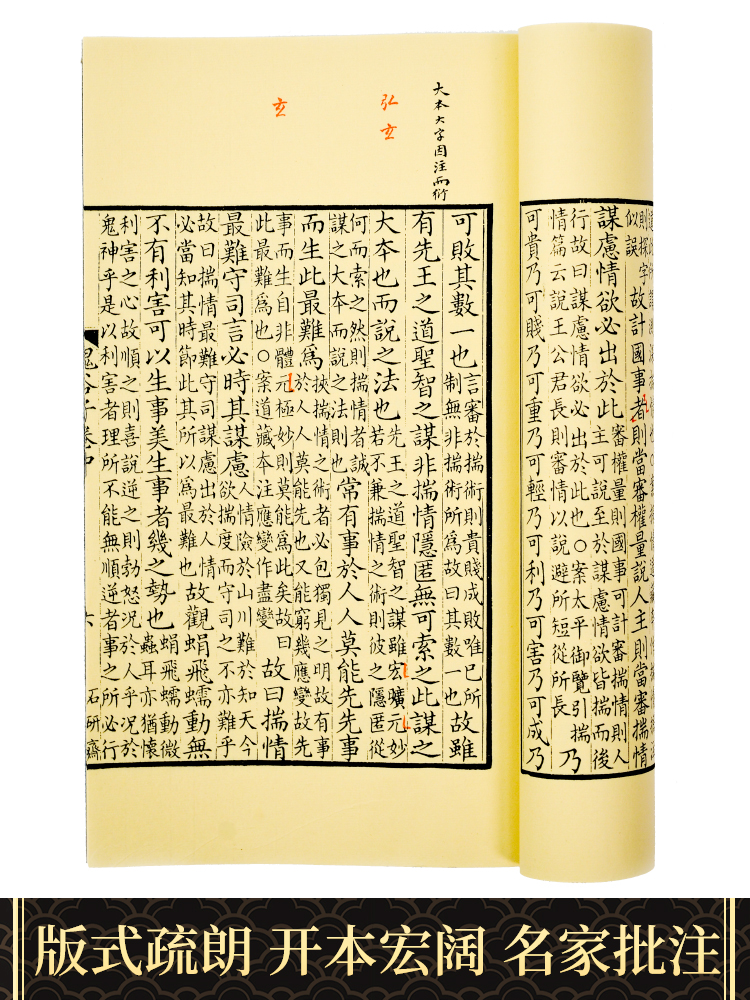 則探字
似誤
故計國事者則當審權量說人主則當審揣情
謀慮情欲必出於此
審權量則國事可計審揣情則人
主可說至於謀慮情欲皆揣而後
行故曰謀慮情欲必出於此也○案太平御覽引揣
情篇云說王公君長則審情以說避所短從所長
乃
可貴乃可賤乃可重乃可輕乃可利乃可害乃可成乃
大本大字因注而衍
弘玄
玄
可敗其數一也
言審於揣術則貴賤成敗唯已所
制無非揣術所爲故曰其數一也
故雖
有先王之道聖智之謀非揣情隱匿無可索之此謀之
大本也而說之法也
先王之道聖智之謀雖宏曠元妙
若不兼揣情之術則彼之隱匿從
何而索之然則揣情者誠
謀之大本而說之法則也
常有事於人人莫能先先事
而生此最難爲
挾揣情之術者必包獨見之明故有事
於人人莫能先也又能窮幾應變故先
事而生自非體元極妙則莫能爲此矣故曰
此最難爲也○案道藏本注應變作盡變
故曰揣情
最難守司言必時其謀慮
人情險於山川難於知天今
欲揣度而守司之不亦難乎
故曰揣情最難守司謀慮出於人情
必當知其時節此其所以爲最難也
故觀蜎飛蠕動無
不有利害可以生事美生事者幾之勢也
蜎飛蠕動微
蟲耳亦猶懷
利害之心故順之則喜說逆之則勃怒况於人乎况於
鬼神乎是以利害者理所不能無順逆者事之所必行
鬼谷子卷中
六
石研齋
版式疏朗 开本宏阔 名家批注